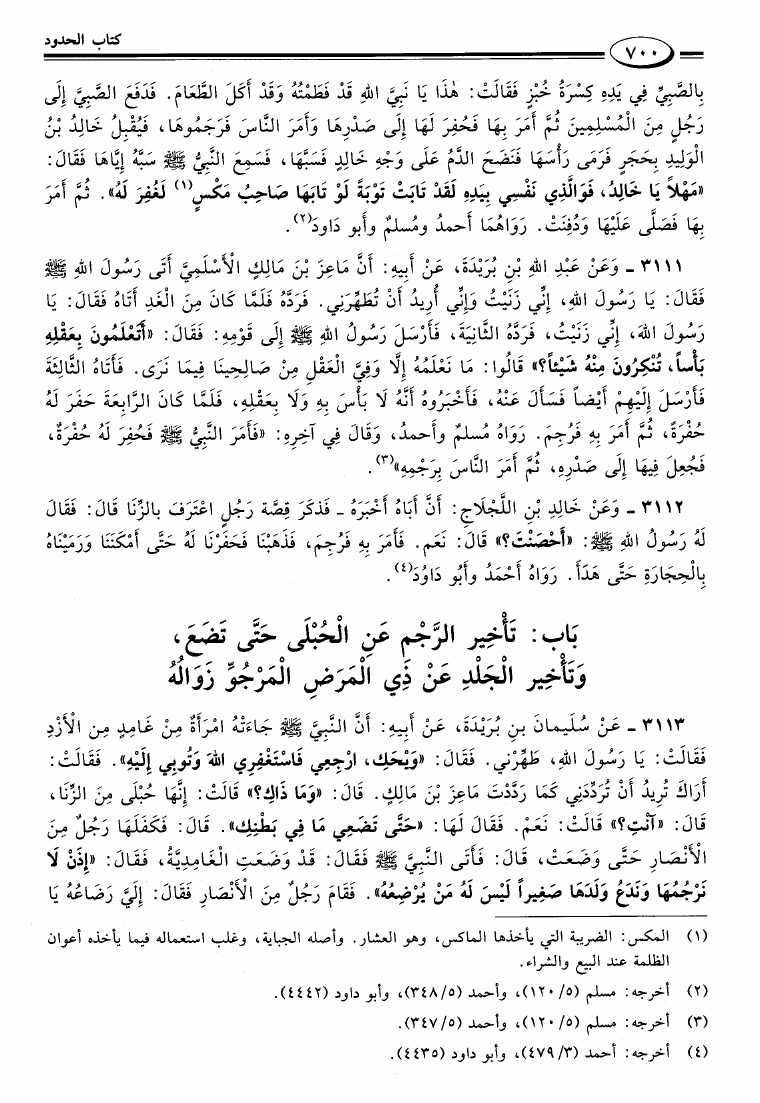 كتاب الحدود
٧٠٠
بِالصَّبِيِّ فِي يَدِهِ كِسْرَةُ خُبْزٍ فَقَالَتْ: هٰذَا يَا نَبِيَّ اللهِ قَدْ فَطَمْتُهُ وَقَدْ أَكَلَ الطَّعَامَ. فَدَفَعَ الصَّبِيَّ إِلَى
رَجُلٍ مِنَ الْمُسْلِمِينَ ثُمَّ أَمَرَ بِهَا فَحُفِرَ لَهَا إِلَى صَدْرِهَا وَأَمَرَ النَّاسَ فَرَجَمُوهَا، فَيُقْبِلُ خَالِدُ بْنُ
الْوَلِيدِ بِحَجَرٍ فَرَمَى رَأْسَهَا فَنَضَحَ الدَّمُ عَلَى وَجْهِ خَالِدٍ فَسَبَّهَا، فَسَمِعَ النَّبِيُّ ﷺ سَبَّهُ إِيَّاهَا فَقَالَ:
«مَهْلاً يَا خَالِدُ، فَوَالَّذِي نَفْسِي بِيَدِهِ لَقَدْ تَابَتْ تَوْبَةً لَوْ تَابَهَا صَاحِبُ مَكْسٍ(١) لَغُفِرَ لَهُ». ثُمَّ أَمَرَ
بِهَا فَصَلَّى عَلَيْهَا وَدُفِنَتْ. رَوَاهُمَا أحمدُ ومُسلمٌ وأبو داودَ(٢).
٣١١١ ـ وَعَنْ عَبْدِ اللهِ بْنِ بُرَيْدَةَ، عَنْ أَبِيهِ: أَنَّ مَاعِزَ بْنَ مَالِكٍ الْأَسْلَمِيَّ أَتَى رَسُولَ اللهِ ﷺ
فَقَالَ: يَا رَسُولَ اللهِ، إِنِّي زَنَيْتُ وَإِنِّي أُرِيدُ أَنْ تُطَهِّرَنِي. فَرَدَّهُ فَلَمَّا كَانَ مِنَ الْغَدِ أَتَاهُ فَقَالَ: يَا
رَسُولَ اللهِ، إِنِّي زَنَيْتُ، فَرَدَّهُ الثَّانِيَةَ، فَأَرْسَلَ رَسُولُ اللهِ ﷺ إِلَى قَوْمِهِ: فَقَالَ: «أَتَعْلَمُونَ بِعَقْلِهِ
بَأْساً، تُنْكِرُونَ مِنْهُ شَيْئاً؟» قَالُوا: مَا نَعْلَمُهُ إِلَّا وَفِيَّ الْعَقْلِ مِنْ صَالِحِينَا فِيمَا نَرَى. فَأَتَاهُ الثَّالِثَةَ
فَأَرْسَلَ إِلَيْهِمْ أَيْضاً فَسَأَلَ عَنْهُ، فَأَخْبَرُوهُ أَنَّهُ لَا بَأْسَ بِهِ وَلَا بِعَقْلِهِ، فَلَمَّا كَانَ الرَّابِعَةَ حَفَرَ لَهُ
حُفْرَةً، ثُمَّ أَمَرَ بِهِ فَرُجِمَ. رَوَاهُ مُسلمٌ وأحمدُ، وَقَالَ فِي آخِرِهِ: «فَأَمَرَ النَّبِيُّ ﷺ فَحُفِرَ لَهُ حُفْرَةٌ،
فَجُعِلَ فِيهَا إِلَى صَدْرِهِ، ثُمَّ أَمَرَ النَّاسَ بِرَجْمِهِ»(٣).
٣١١٢ ـ وَعَنْ خَالِدِ بْنِ اللَّجْلَاجِ: أَنَّ أَبَاهُ أَخْبَرَهُ ـ فَذكَرَ قِصَّةَ رَجُلٍ اعْتَرَفَ بالزِّنَا قَالَ: فَقَالَ
لَهُ رَسُولُ اللهِ ﷺ: «أَحْصَنْتَ؟» قَالَ: نَعَم. فَأَمَرَ بِهِ فَرُجِمَ، فَذَهَبْنَا فَحَفَرْنَا لَهُ حَتَّى أَمْكَنَنَا وَرَمَيْنَاهُ
بِالْحِجَارَةِ حَتَّى هَدَأَ. رَوَاهُ أَحْمَدُ وَأَبُو دَاوُدَ(٤).
بَاب: تَأْخِير الرَّجْمِ عَنِ الْحُبْلَى حَتَّى تَضَعَ،
وَتَأْخِير الْجَلْدِ عَنْ ذِي الْمَرَضِ الْمَرْجُوِّ زَوَالُهُ
٣١١٣ ـ عَنْ سُلَيمانَ بنِ بُرَيْدَةَ، عَنْ أَبِيهِ: أَنَّ النَّبِيَّ ﷺ جَاءَتْهُ امْرَأَةٌ مِنْ غَامِدٍ مِن الْأَزْدِ
فَقَالَتْ: يَا رَسُولَ اللهِ، طَهِّرْني. فَقَالَ: «وَيْحَكِ، ارْجِعِي فَاسْتَغْفِرِي اللهَ وَتُوبِي إِلَيْهِ». فَقَالَتْ:
أَرَاكَ تُرِيدُ أَنْ تُرَدِّدَنِي كَمَا رَدَّدْتَ مَاعِزَ بْنَ مَالِكٍ. قَالَ: «وَمَا ذَاكِ؟» قَالَتْ: إِنَّهَا حُبْلَى مِنَ الزِّنَا،
قَالَ: «آنْتِ؟» قَالَتْ: نَعَمْ. فَقَالَ لَهَا: «حَتَّى تَضَعِي مَا فِي بَطْنِكِ». قَالَ: فَكَفَلَهَا رَجُلٌ مِنَ
الْأَنْصَارِ حَتَّى وَضَعَتْ، قَالَ: فَأَتَى النَّبِيَّ ﷺ فَقَالَ: قَدْ وَضَعَتِ الْغَامِدِيَّةُ، فَقَالَ: «إِذَنْ لَا
نَرْجُمُهَا وَنَدَعُ وَلَدَهَا صَغِيراً لَيْسَ لَهُ مَنْ يُرْضِعُهُ». فَقَامَ رَجُلٌ مِنَ الْأَنْصَارِ فَقَالَ: إِلَيَّ رَضَاعُهُ يَا
(١) المكس: الضريبة التي يأخذها الماكس، وهو العشار. وأصله الجباية، وغلب استعماله فيما يأخذه أعوان
الظلمة عند البيع والشراء.
(٢) أخرجه: مسلم (٥/ ١٢٠)، وأحمد (٥/ ٣٤٨)، وأبو داود (٤٤٤٢).
(٣) أخرجه: مسلم (٥/ ١٢٠)، وأحمد (٥/ ٣٤٧).
(٤) أخرجه: أحمد (٣/ ٤٧٩)، وأبو داود (٤٤٣٥).